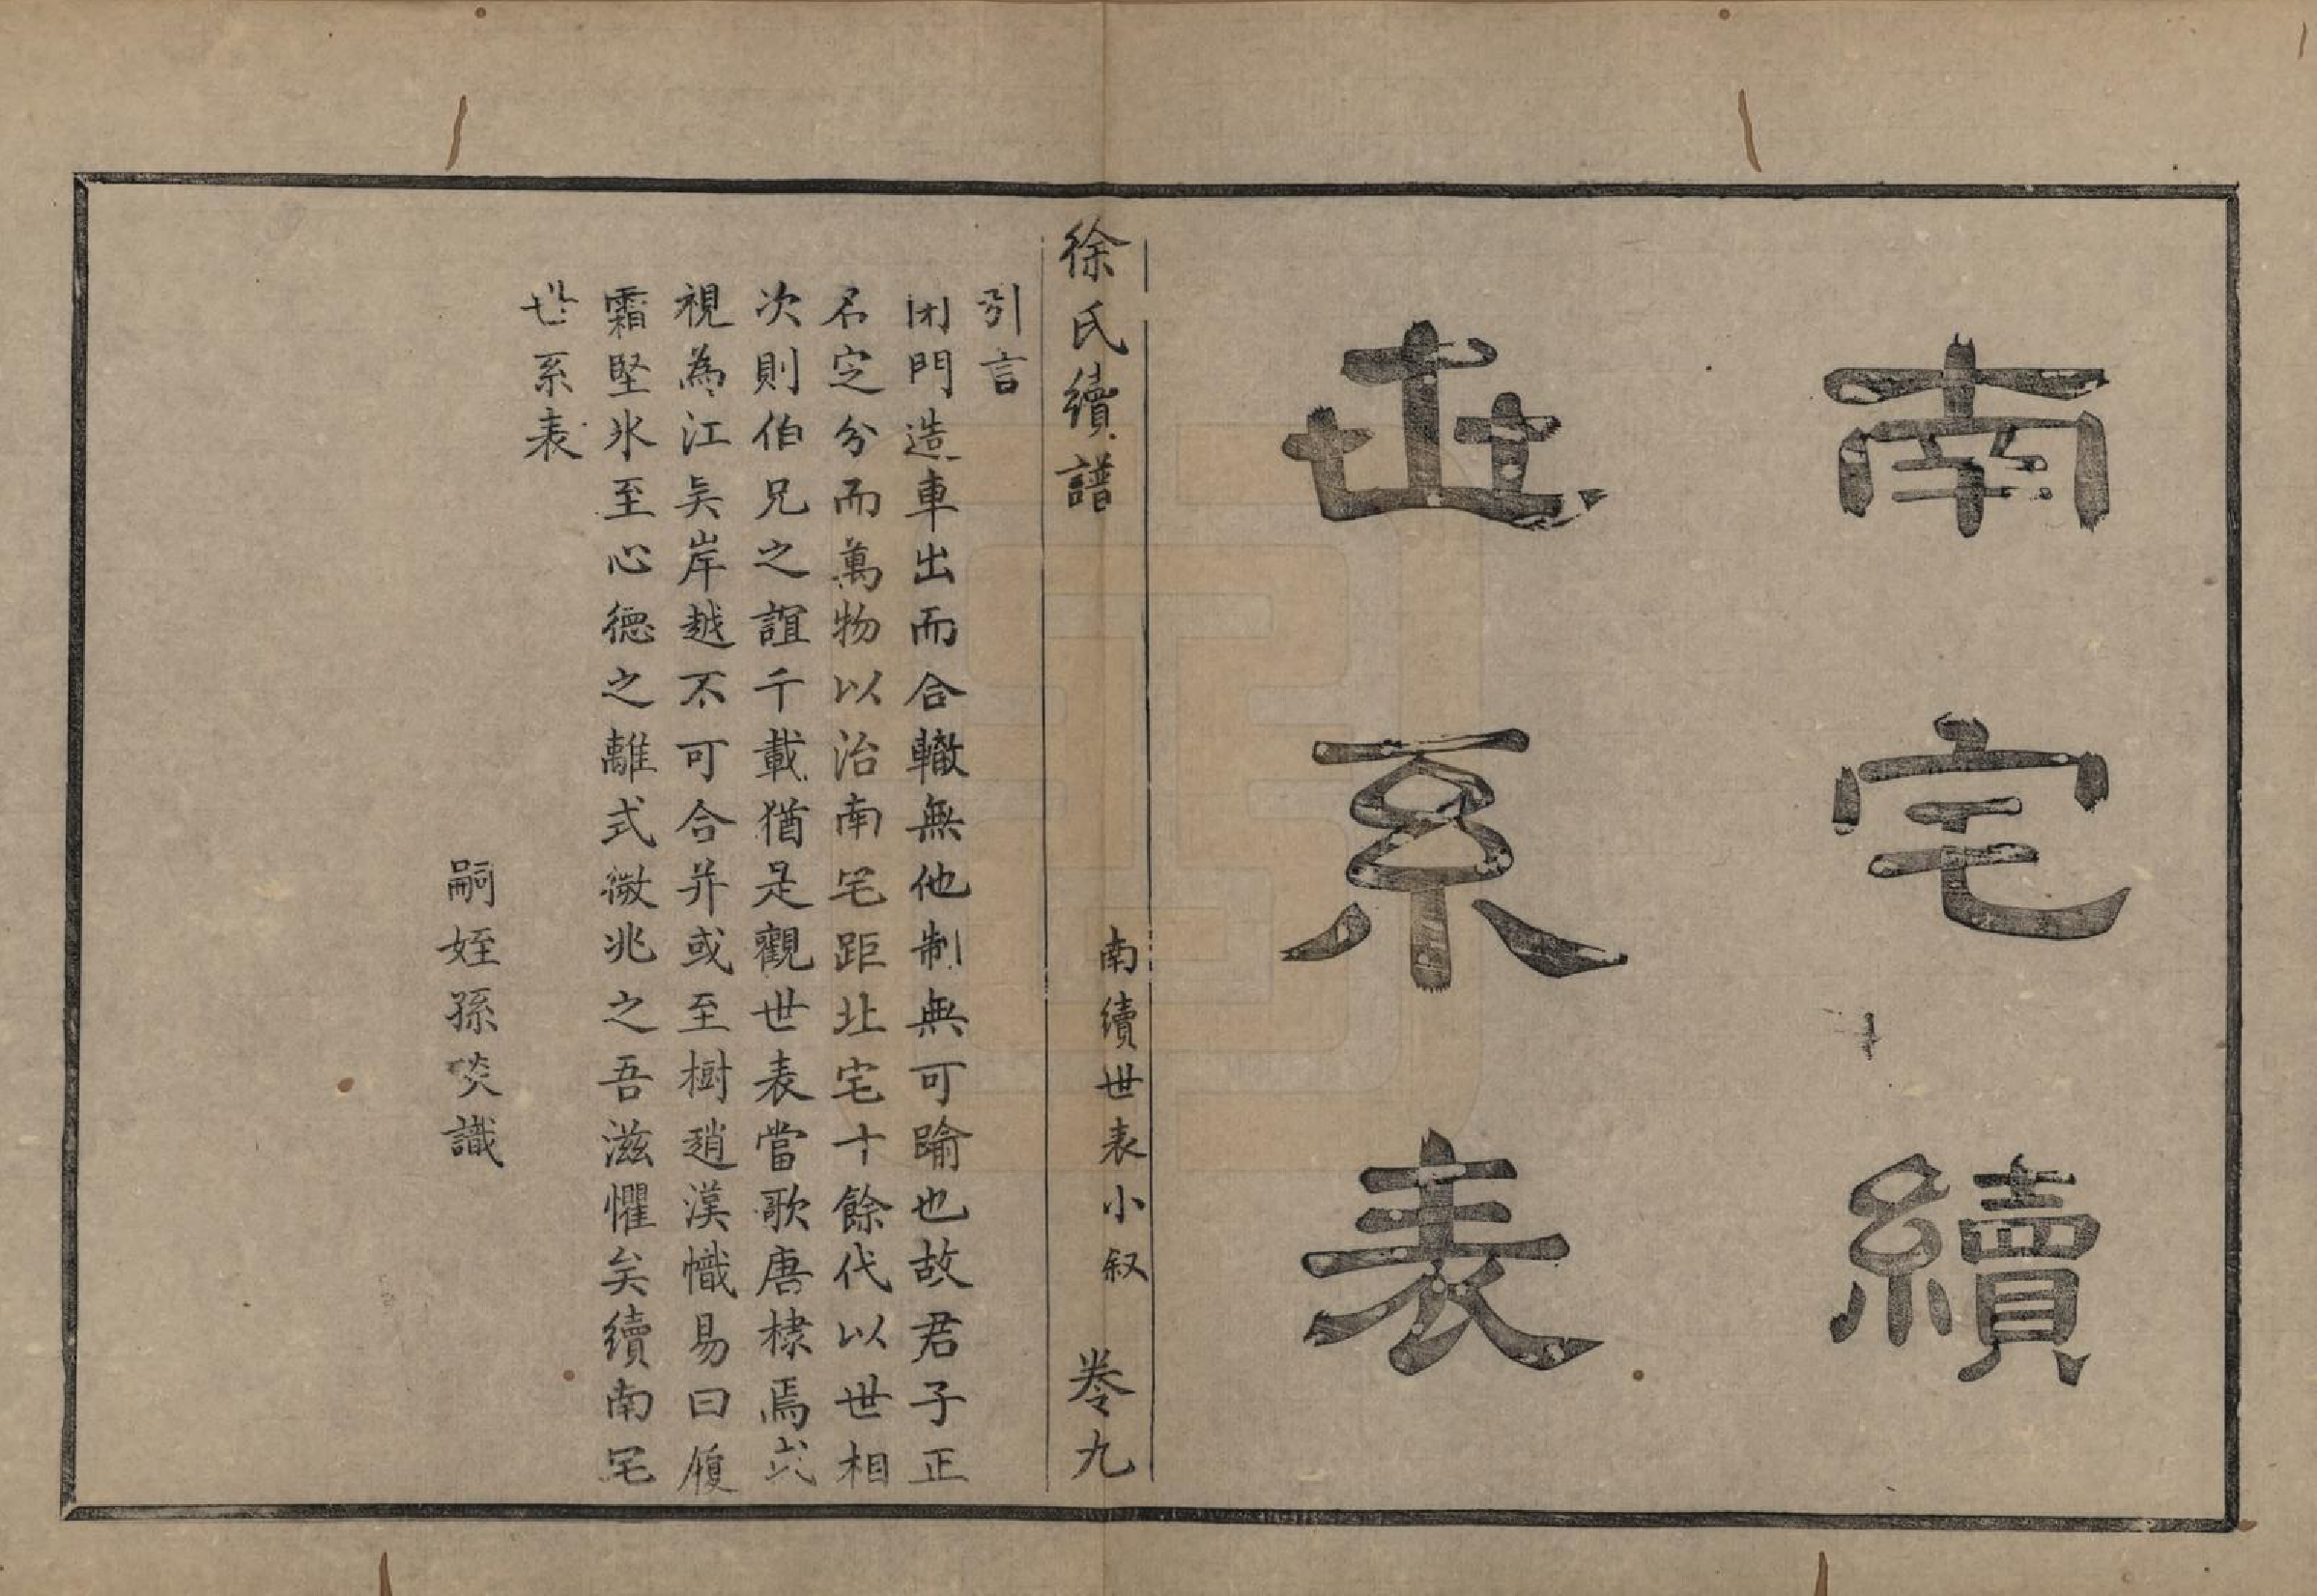 南宅續
世系表
徐氏續譜
南續世表小叙
卷九
引言
閉門造車出而合轍無他制無可踰也故君子正
名定分而萬物以治南宅距北宅十餘代以世相
次則伯兄之誼千載猶是觀世表當歌唐棣焉
視為江矣岸越不可合并或至樹趙漢幟易曰履
霜堅氷至心德之離式微兆之吾滋懼矣續南宅
世系表
嗣姪孫識